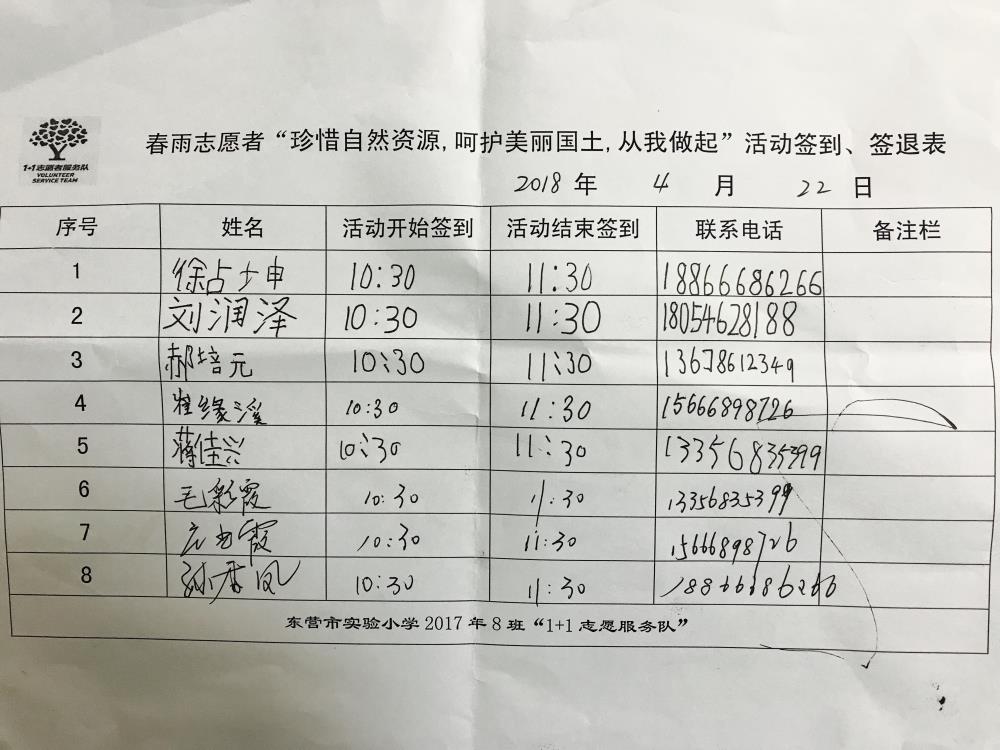 1+1志愿者服务队
VOLUNTEER
SERVICE TEAM
春雨志愿者“珍惜自然资源,呵护美丽国土,从我做起”活动签到、签退表
2018 年 4 月 22 日
序号 姓名 活动开始签到 活动结束签到 联系电话 备注栏
1 徐占士申 10:30 11:30 18866686266
2 刘润泽 10:30 11:30 18054628188
3 郝培元 10:30 11:30 13678612349
4 崔缘溪 10:30 11:30 15666898726
5 蒋佳兴 10:30 11:30 13356835399
6 毛彩霞 10:30 11:30 13356835399
7 霞 10:30 11:30 15666898726
8 孙香凤 10:30 11:30 18866686266
东营市实验小学 2017 年 8 班 “1+1 志愿服务队”